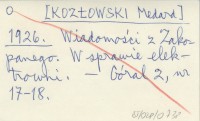 O [KOZŁOWSKI Medard]
1926. Wiadomości z Zako-
panego. W sprawie elek-
trowni. — Góral 2, nr
17-18.